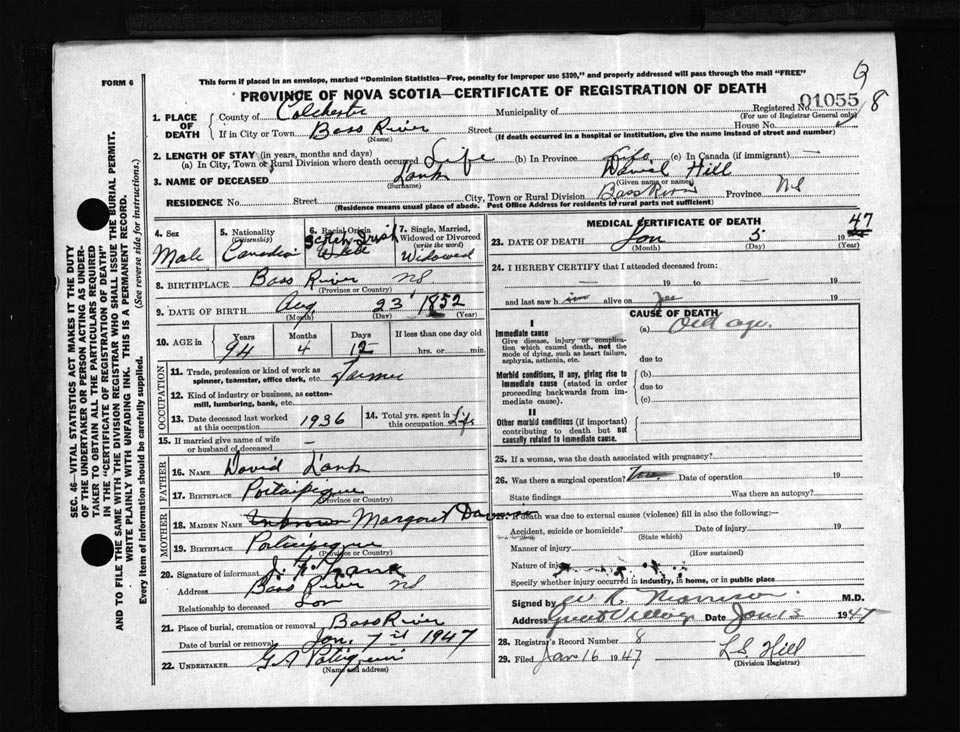 FORM 6
This form if placed in an envelope, marked "Dominion Statistics—Free, penalty for improper use $300," and properly addressed will pass through the mail "FREE"
PROVINCE OF NOVA SCOTIA—CERTIFICATE OF REGISTRATION OF DEATH
Registered No. 01055 8
(For use of Registrar General only)
1. PLACE OF DEATH
County of Colchester Municipality of
If in City or Town Bass River Street House No.
(Name) (If death occurred in a hospital or institution, give the name instead of street and number)
2. LENGTH OF STAY (in years, months and days)
(a) In City, Town or Rural Division where death occurred Life (b) In Province Life (c) In Canada (if immigrant) —
3. NAME OF DECEASED Lank David Hill
(Surname) (Given name or names)
RESIDENCE No. Street City, Town or Rural Division Bass River Province NS
(Residence means usual place of abode. Post Office Address for residents in rural parts not sufficient)
4. Sex Male
5. Nationality (Citizenship) Canadian
6. Racial Origin Scotch Irish
7. Single, Married, Widowed or Divorced (write the word) Widowed
8. BIRTHPLACE Bass River NS
(Province or Country)
9. DATE OF BIRTH Aug 23 1852
(Month) (Day) (Year)
10. AGE in Years Months Days If less than one day old
94 4 12 hrs. or min.
OCCUPATION
11. Trade, profession or kind of work as spinner, teamster, office clerk, etc. Farmer
12. Kind of industry or business, as cotton-mill, lumbering, bank, etc.
13. Date deceased last worked at this occupation 1936
14. Total yrs. spent in this occupation Life
15. If married give name of wife or husband of deceased —
FATHER
16. NAME David Lank
17. BIRTHPLACE Portaipique
(Province or Country)
MOTHER
18. MAIDEN NAME Unknown Margaret
19. BIRTHPLACE Portaipique
(Province or Country)
20. Signature of informant
Address Bass River NS
Relationship to deceased Son
21. Place of burial, cremation or removal Bass River
Date of burial or removal Jan. 7 1947
22. UNDERTAKER
(Name and address)
MEDICAL CERTIFICATE OF DEATH
23. DATE OF DEATH Jan 5 1947
(Month) (Day) (Year)
24. I HEREBY CERTIFY that I attended deceased from:
— 19 to — 19
and last saw him alive on 19
CAUSE OF DEATH
I
Immediate cause
Give disease, injury or complication which caused death, not the mode of dying, such as heart failure, asphyxia, asthenia, etc.
(a) Old age.
due to
Morbid conditions, if any, giving rise to immediate cause (stated in order proceeding backwards from immediate cause).
(b)
due to
(c)
II
Other morbid conditions (if important) contributing to death but not causally related to immediate cause.
25. If a woman, was the death associated with pregnancy?
26. Was there a surgical operation? Date of operation 19
State findings Was there an autopsy?
27. If death was due to external causes (violence) fill in also the following:—
Accident, suicide or homicide? Date of injury 19
(State which)
Manner of injury
(How sustained)
Nature of injury
Specify whether injury occurred in industry, in home, or in public place
Signed by M.D.
Address Great Village Date Jan 13 1947
28. Registrar's Record Number 8
29. Filed Jan 16 1947 L S Hill
(Division Registrar)
SEC. 46—VITAL STATISTICS ACT MAKES IT THE DUTY
OF THE UNDERTAKER OR PERSON ACTING AS UNDER-
TAKER TO OBTAIN ALL THE PARTICULARS REQUIRED
IN THE "CERTIFICATE OF REGISTRATION OF DEATH"
AND TO FILE THE SAME WITH THE DIVISION REGISTRAR WHO SHALL ISSUE THE BURIAL PERMIT.
WRITE PLAINLY WITH UNFADING INK. THIS IS A PERMANENT RECORD.
Every item of information should be carefully supplied. (See reverse side for instructions.)